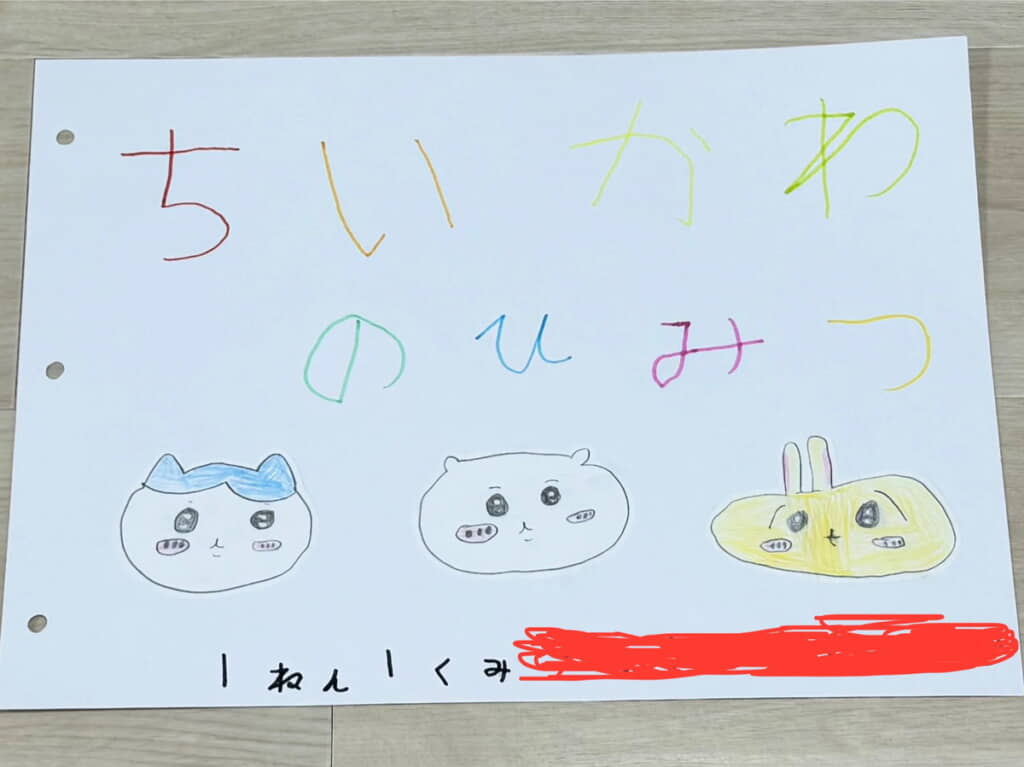 ちいかわ
のひみつ
1ねん1くみ